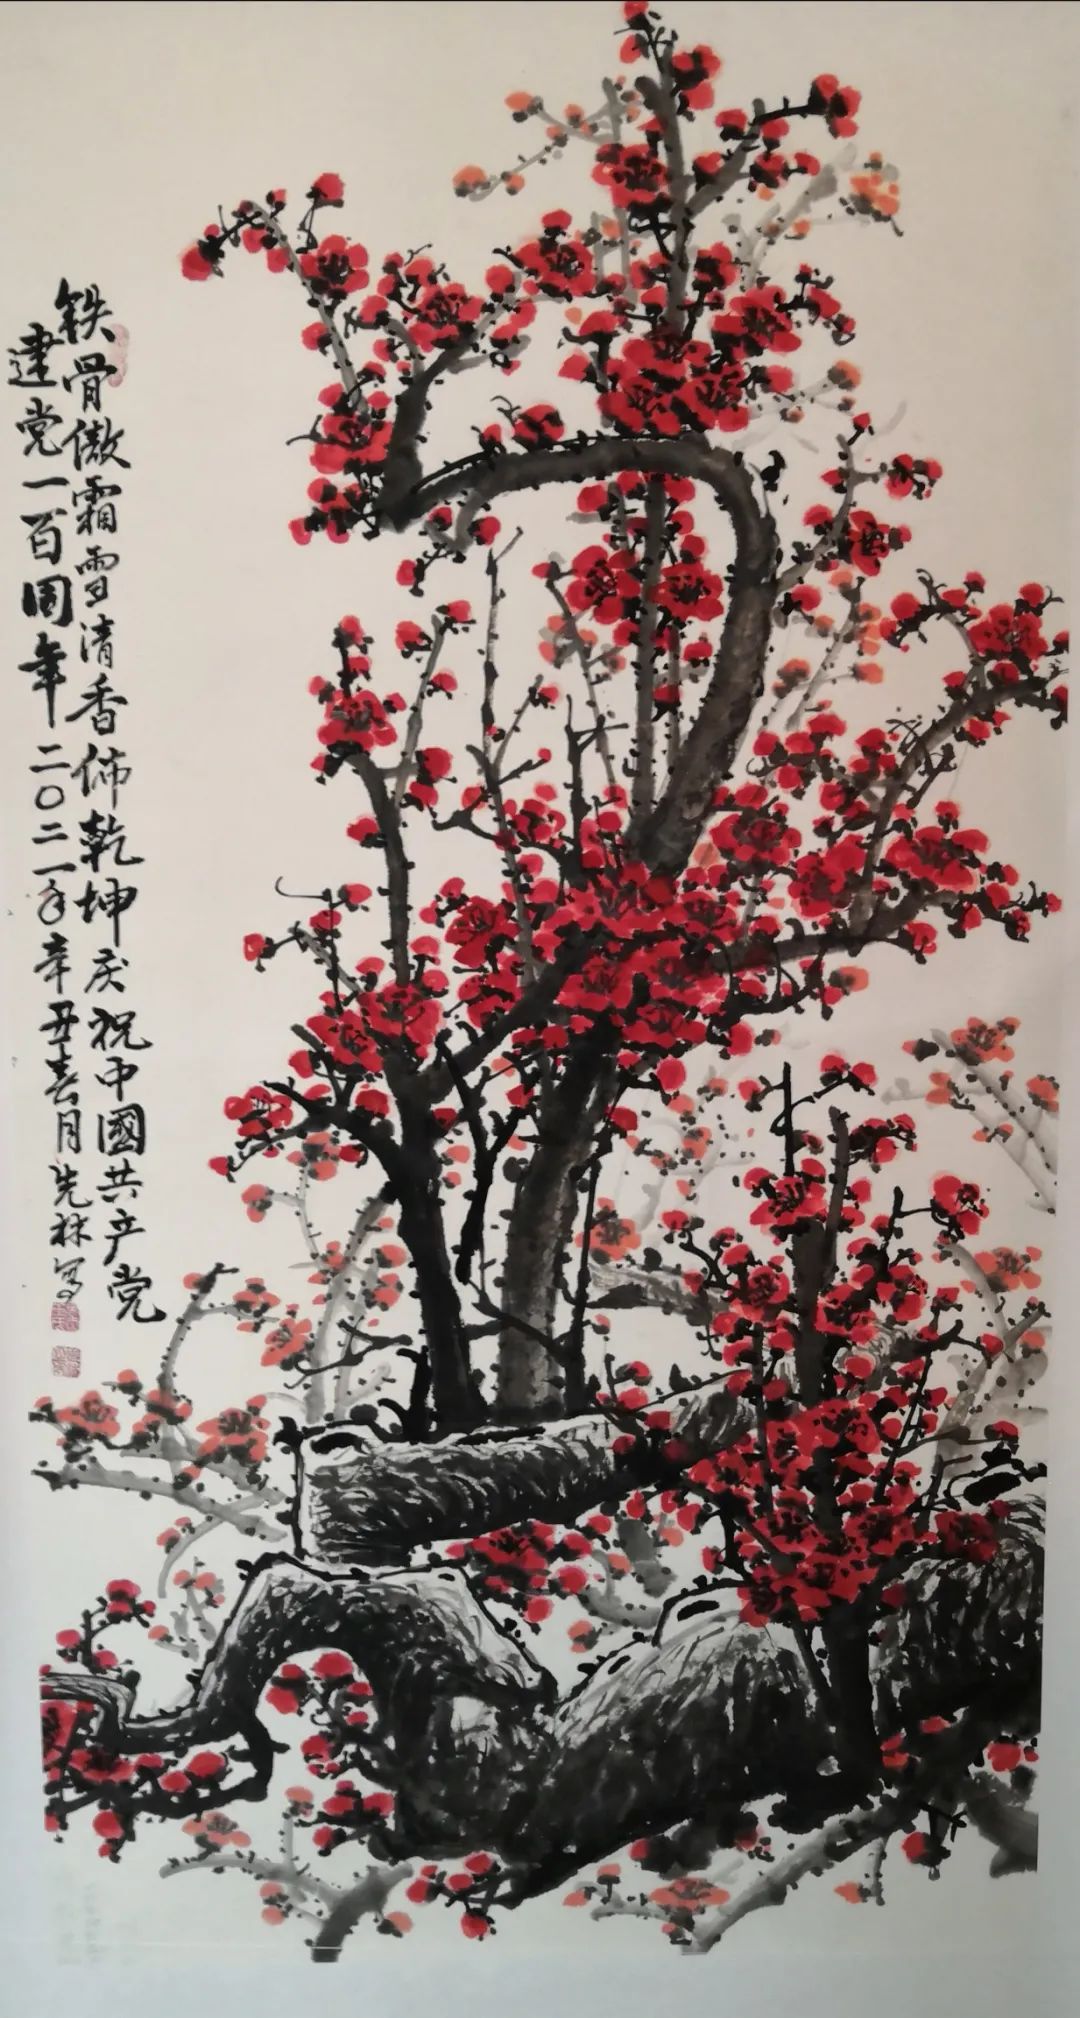 铁骨傲霜雪清香佈乾坤庆祝中國共产党
建党一百周年二〇二一年辛丑春月先林写